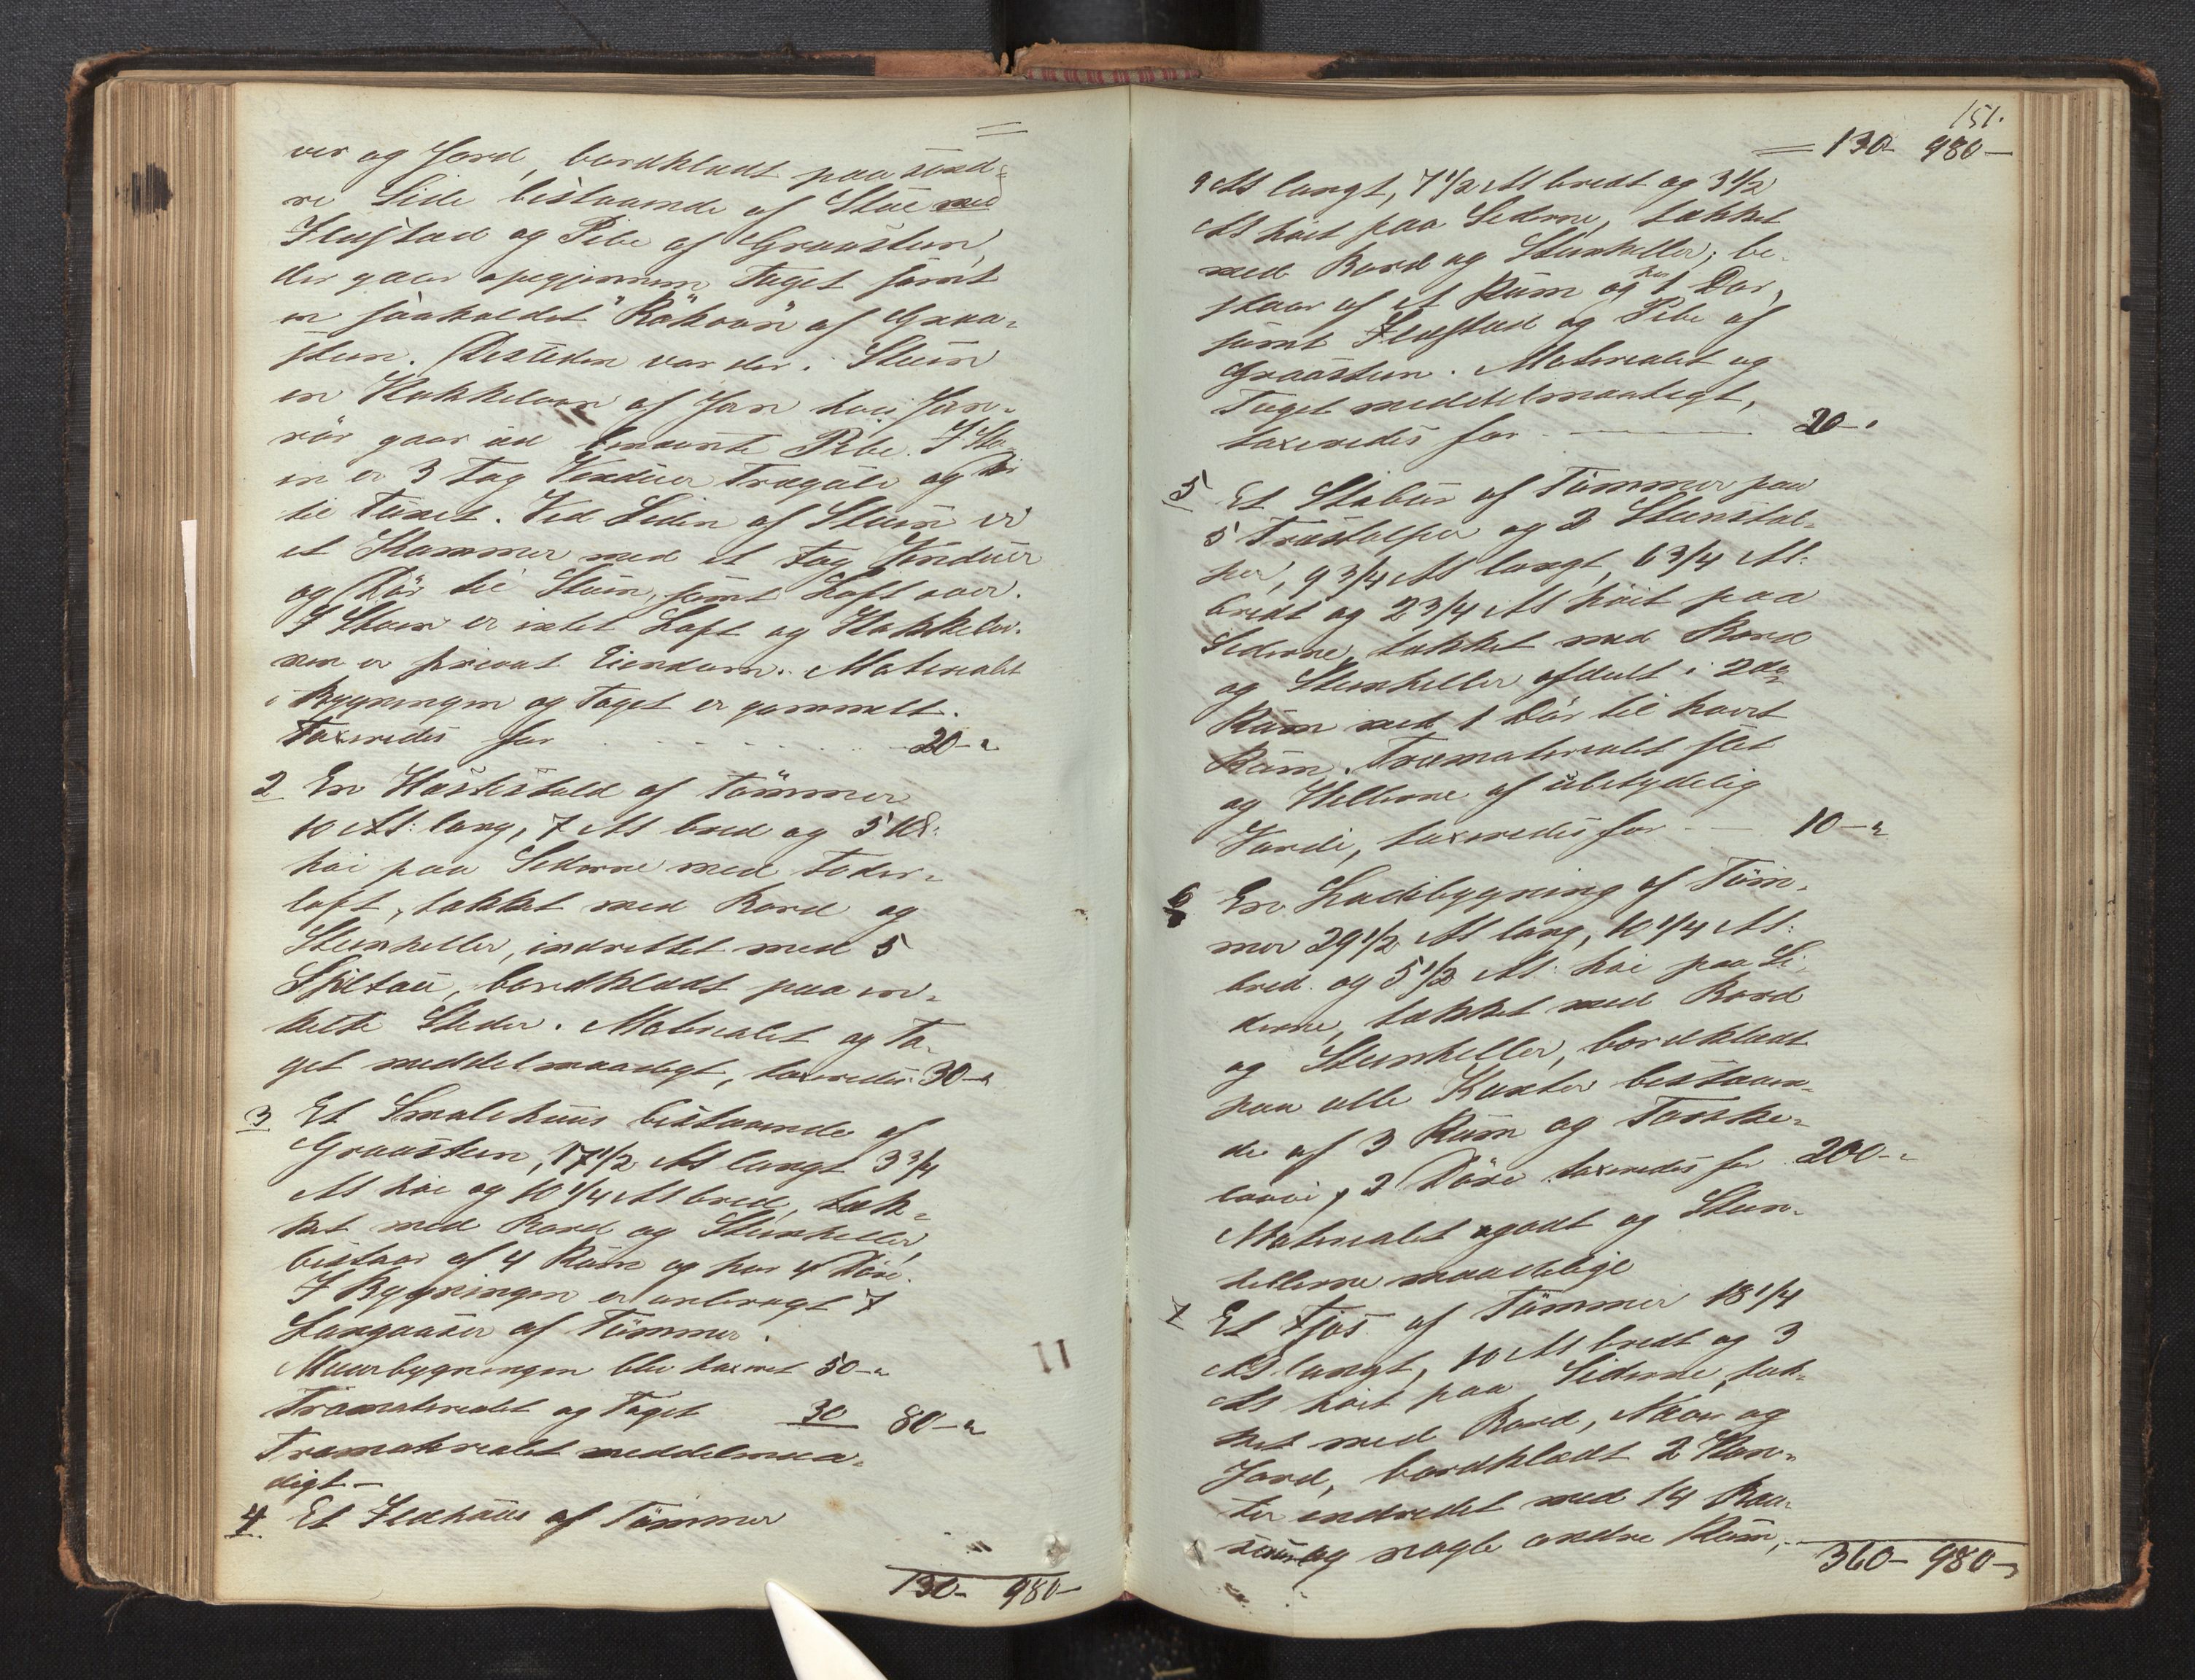 ver og Jord, bordklædt paa nord-
re Side bestaaende af Stue med
Ildsted og Pibe af Graasteen,
der gaar opigjennem Taget samt
en saakaldet "Røkovn" af Graa-
steen. Desuden var der i Stuen
en Kakkelovn af Jern hvis Jern-
rör gaar ud bemeldte Pibe. I Stu-
en er 3 Fag Vinduer Trægulv og Dör
til Tunet. Ved Siden af Stuen er
et Kammer med et Fag Vinduer
og Dör til Stuen, samt Loft over.
I Stuen er intet Loft og Kakkelov-
nen er privat Eiendom. Materialet
i Bygningen og Taget er gammelt.
Taxeredes for 20-"
2 En Hestestald af Tömmer
10 Al: lang, 7 Al bred og 5 Al:
höi paa Siderne med Foder-
loft, tækket med Bord og
Steenheller, indrettet med 5
Spiltau, bordklædt paa en-
kelte Steder. Materialet og Ta-
get meddelmaadigt, taxeredes 30-"
3 Et Smalehuus bestaaende af
Graasteen, 17 1/2 Al langt 3 3/4
Al höi og 10 1/4 Al bred, tæk-
ket med Bord og Steenheller,
bestaar af 4 Rum og har 4 Döre.
I Bygningen er anbragt 7
Langaaser af Tömmer.
Muurbygningen blev taxeret 50-"
Træmaterialet og Taget 30 80-"
Træmaterialet meddelmaa-
digt-
4. Et Ildhuus af Tömmer
130- 980-
151.
130- 980-
9 Al langt, 7 1/2 Al bredt og 3 1/2
Al höit paa Siderne, tækket
med Bord og Steenheller, be-
staar af et Rum og har 1 Dör,
samt Ildsted og Pibe af
Graasteen. Materialet og
Taget meddelmaadigt,
taxeredes for 20-"
5 Et Stabur af Tömmer paa
5 Træstolper og 2 Steenstol-
per, 9 3/4 Al langt, 6 3/4 Al:
bredt og 2 3/4 Al höit paa
Siderne, tækket med Bord
og Steenheller afdeelt i 2de
Rum med 1 Dör til hvert
Rum. Træmaterialet slet
og Hellerne af ubetydelig
Værdi, taxeredes for 10-"
6 En Ladebygning af Töm-
mer 29 1/2 Al lang, 10 1/4 Al:
bred og 5 1/2 Al: höi paa Si-
derne, tækket med Bord
og Steenheller, bordklædt
paa alle Kanter bestaaen-
de af 3 Rum og Tærske-
laave, 2 Döre taxeredes for 200-"
Materialet godt og Steen-
hellerne maadelige
7 Et Fjös af Tömmer 18 1/4
Al langt, 10 Al bredt og 3
Al höit paa Siderne, tæk-
ket med Bord, Næver og
Jord, bordklædt 2 Kan-
ter indredet med 14 Baa-
se og nogle andre Rum,
360- 980-